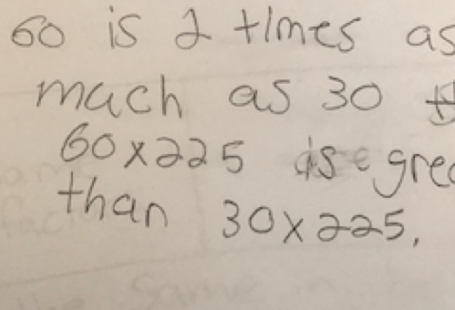 60 is 2 times as
mach as 30
60x225 is grea
than 30x225.